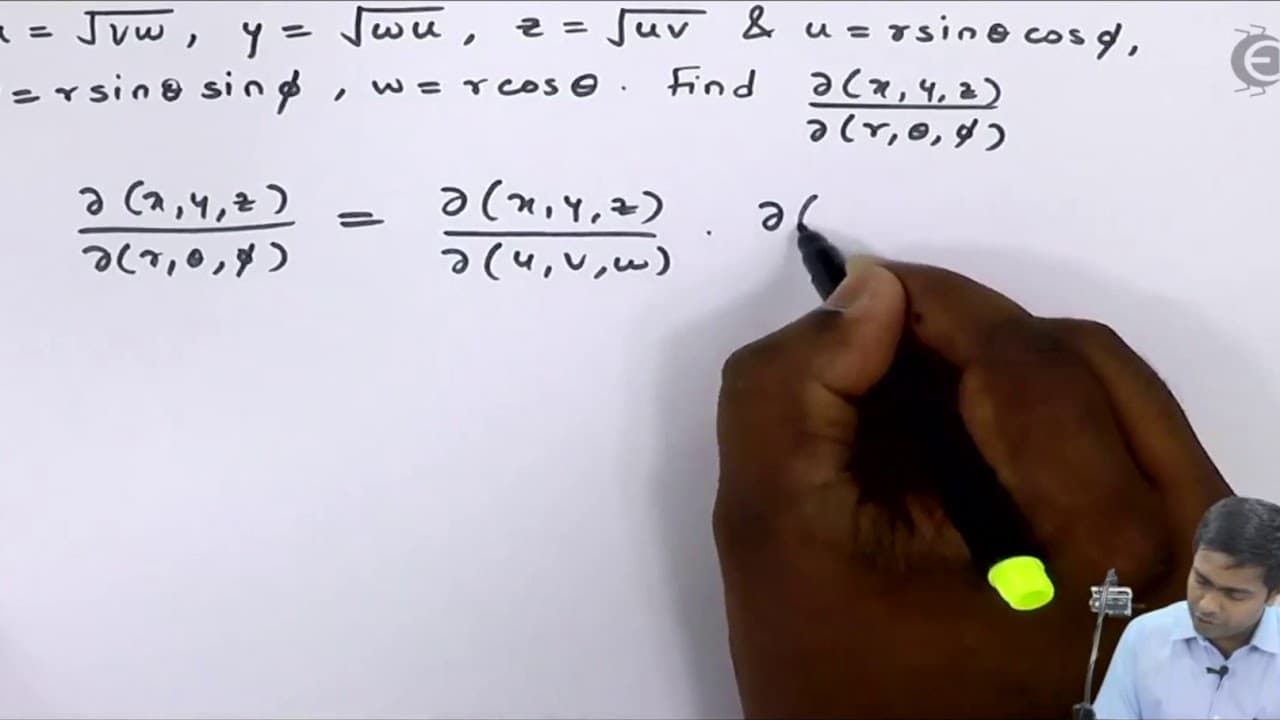 = √vw, y = √wu, z = √uv & u = r sinθ cosϕ,
= r sinθ sinϕ, w = r cosθ. Find ∂(x,y,z)/∂(r,θ,ϕ)
∂(x,y,z)/∂(r,θ,ϕ) = ∂(x,y,z)/∂(u,v,w) . ∂(